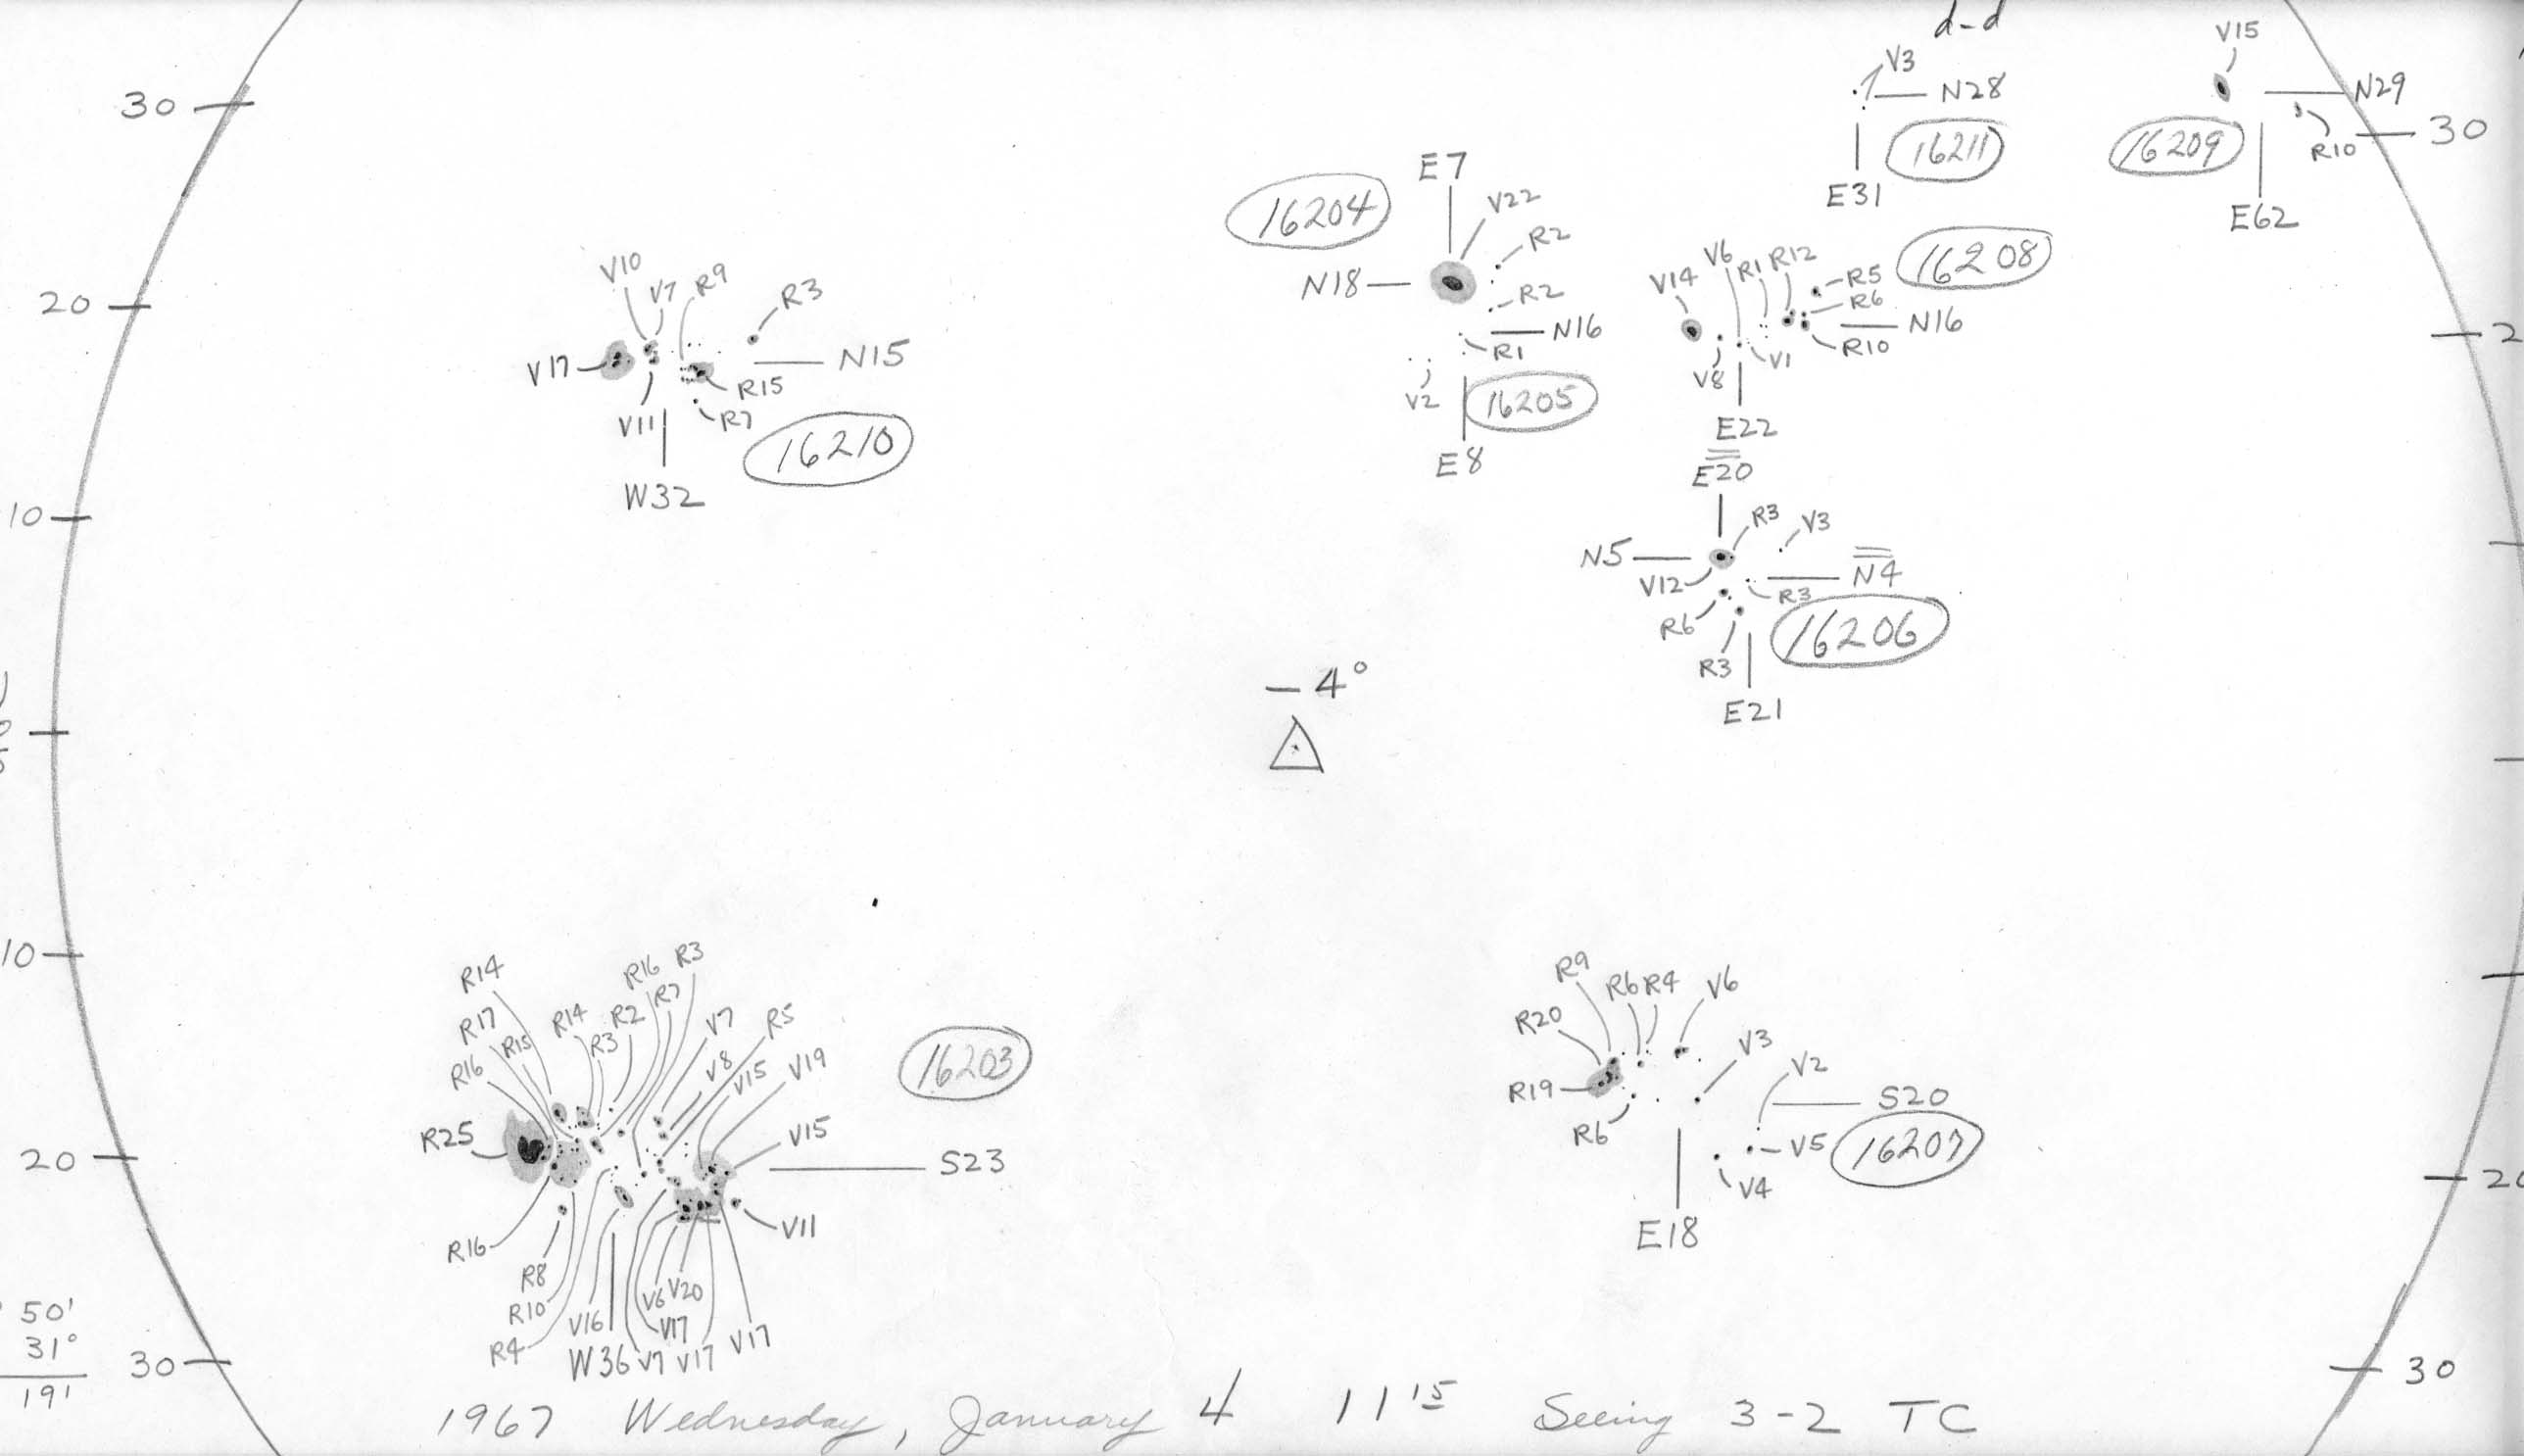 d-d
V15
V3
30
N28
N29
16211
16209
R10
30
E7
E31
E62
16204
V22
R2
N18
R2
N16
R1
V2
16205
E8
V10
V7
R9
R3
20
V17
N15
R15
V11
R7
16210
W32
V14
V6
R1
R12
R5
R6
16208
N16
R10
V8
V1
E22
2
10
E20
R3
V3
N5
V12
N4
R3
R6
16206
R3
E21
- 4°
10
R14
R16
R3
R17
R15
R14
R2
R7
V7
R5
R3
16203
R16
V8
V15
V19
R25
V15
20
S23
R16
V11
R8
R10
V6
V20
V16
V17
R4
W36
V7
V17
V17
R9
R6
R4
V6
R20
V3
V2
R19
S20
R6
V5
16207
V4
20
E18
50'
31°
19'
30
30
1967 Wednesday, January 4 11 15 Seeing 3-2 TC